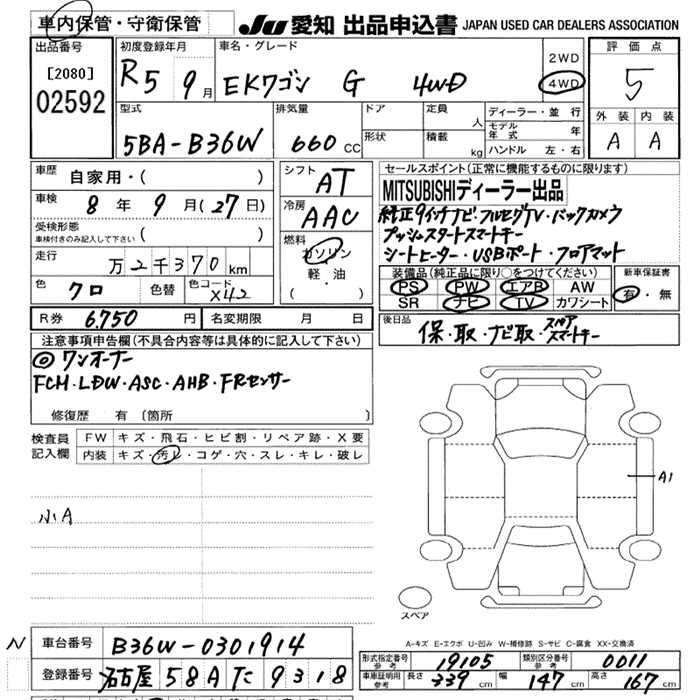 車内保管・守衛保管 JU 愛知 出品申込書 JAPAN USED CAR DEALERS ASSOCIATION
出品番号 初度登録年月 車名・グレード 評価点
[2080] R5 9月 EKワゴン G 4WD 2WD 4WD 5
02592
型式 排気量 ドア 定員 人 ディーラー・並行 外装 内装
5BA-B36W 660 cc 形状 積載 kg モデル年式 年 A A
ハンドル 左・右
車歴 自家用・( ) シフト AT セールスポイント(正常に機能するものに限ります)
車検 8年 9月(27日) 冷房 AAC MITSUBISHIディーラー出品
純正9インチナビ・フルセグTV・バックカメラ
受検形態 車検付きのみ記入して下さい ( ) 燃料 ガソリン プッシュスタートスマートキー
走行 万2千370km 軽油 シートヒーター・USBポート・フロアマット
( ) 装備品(純正品に限り○をつけてください) 新車保証書
色 クロ 色替 色コード X42 PS PW エアB AW 有・無
SR ナビ TV カワシート
R券 6,750円 名変期限 月 日 後日品 保・取・ナビ取・スペアスマートキー
注意事項申告欄(不具合内容等は具体的に記入して下さい)
◎ワンオーナー
FCM・LDW・ASC・AHB・FRセンサー
修復歴 有(箇所 )
検査員記入欄 FW キズ・飛石・ヒビ割・リペア跡・X要
内装 キズ・汚レ・コゲ・穴・スレ・キレ・破レ
A1
小A
スペア
A-キズ E-エクボ U-凹み W-補修跡 S-サビ C-腐食 XX-交換済
N 車台番号 B36W-0301914
形式指定番号 参考 19105 類別区分番号 参考 0011
登録番号 名古屋 58A た 9318 車車証明用 参考 長さ 339cm 幅 147cm 高さ 167cm